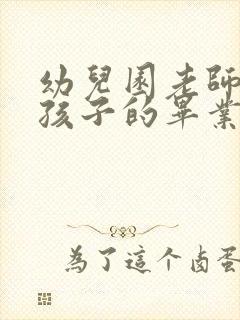 幼兒園老師
孩子的畢業
為了這个卤蛋